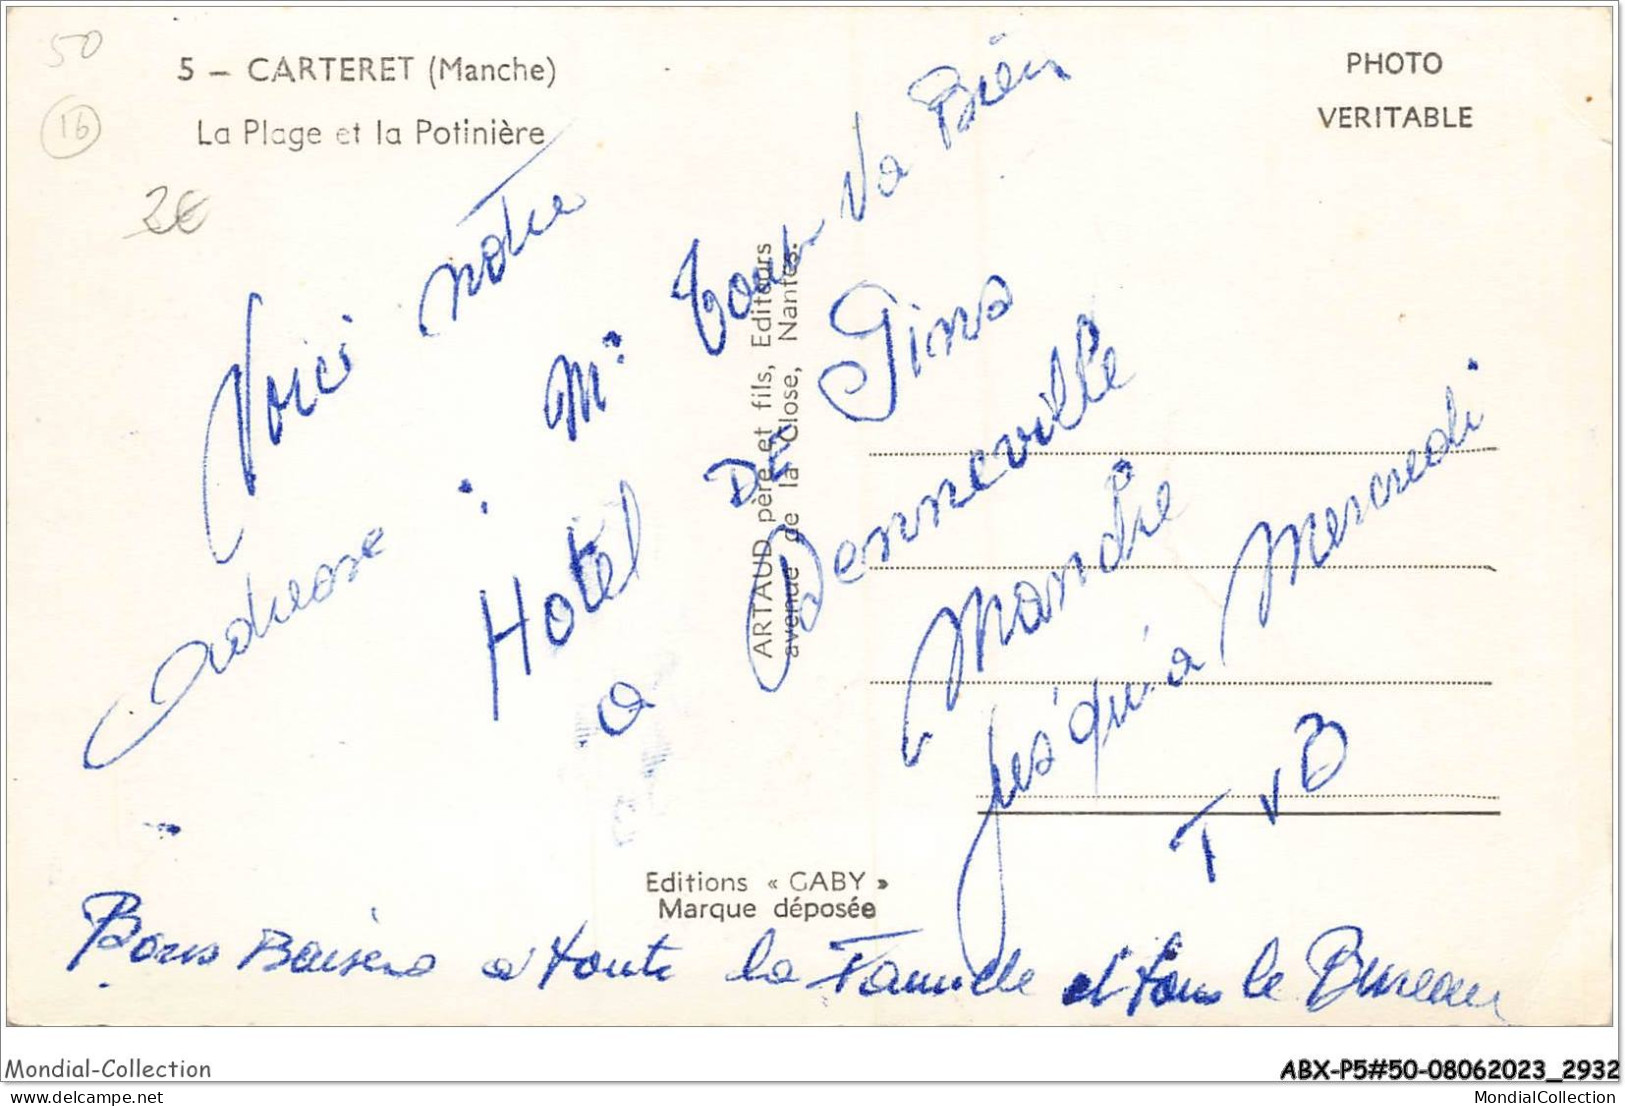 50
5 - CARTERET (Manche)
La Plage et la Potinière
16
2€
PHOTO
VERITABLE
Voici notre
adresse : Mr. Tout Va Bien
Hotel DE Gins
a Denneville
Manche
jusqu'à Mercredi
T v B
ARTAUD père et fils, Editeurs
avenue de la Close, Nantes.
Editions « GABY »
Marque déposée
Bons Baisers a toute la Famille et tous le Bureau
Mondial-Collection
ABX-P5#50-08062023_2932
delcampe.net
MondialCollection